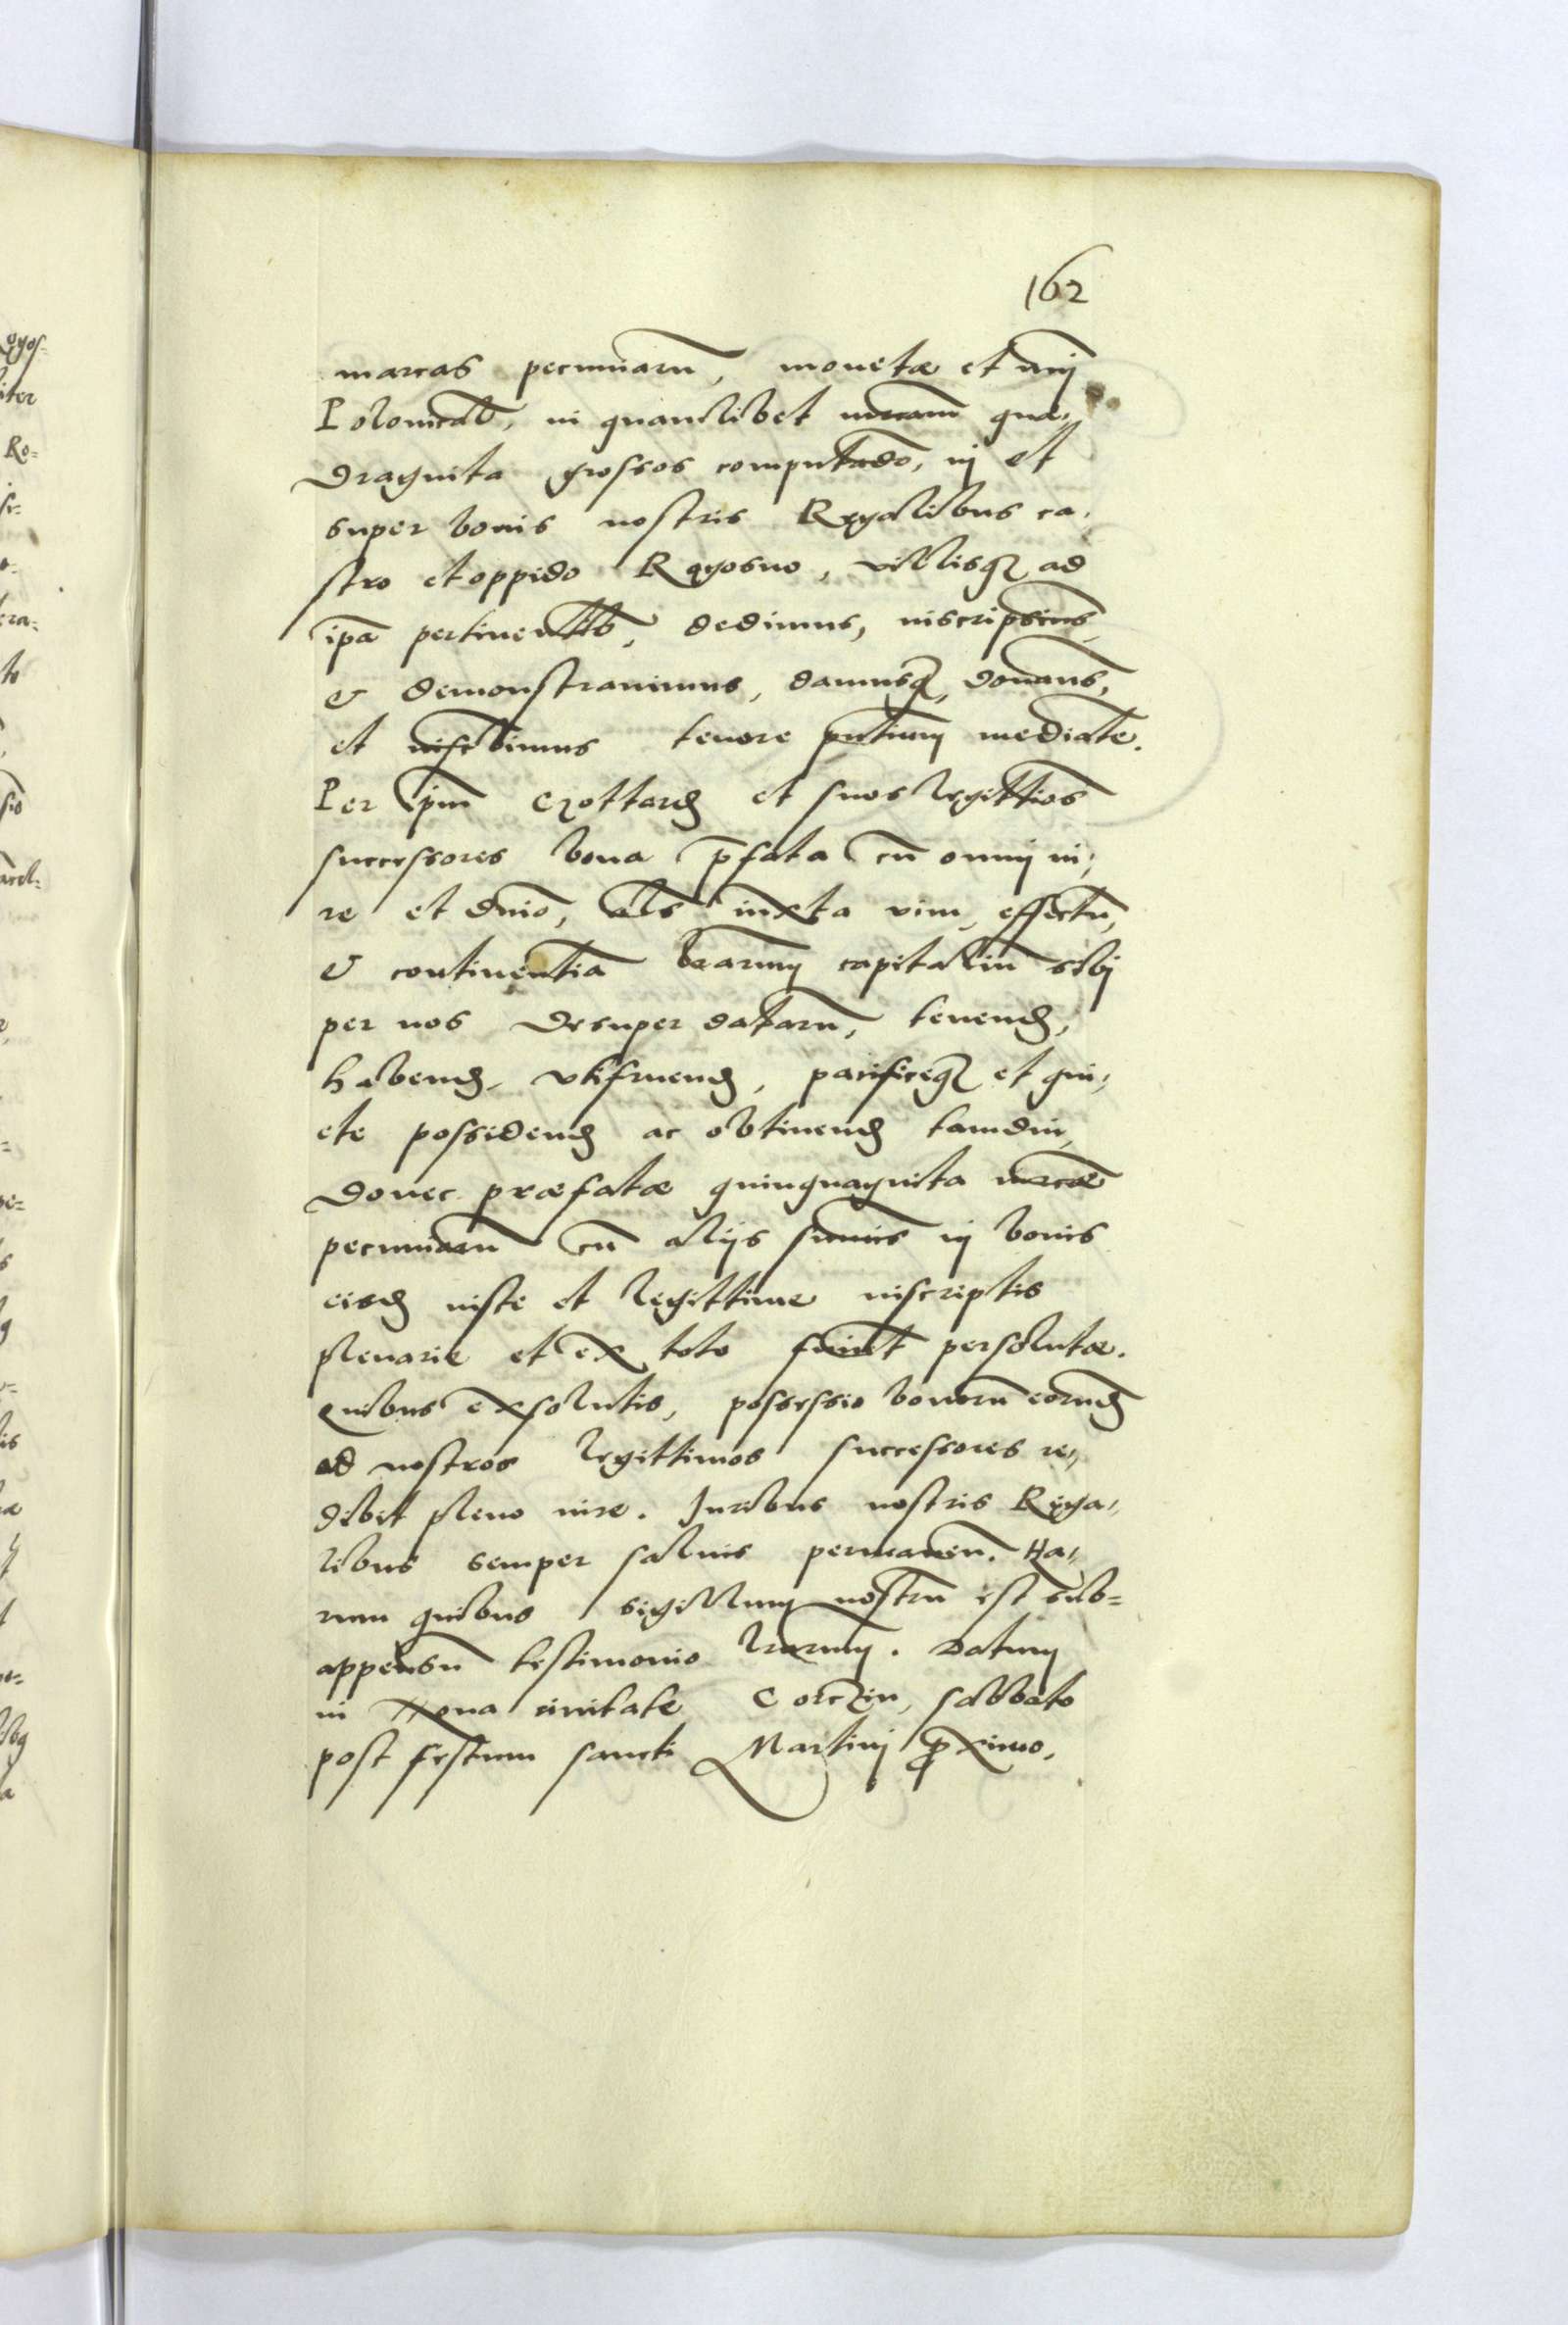 162
marcas pecuniarũ, monetæ et nrij
Polonicalis, in quamlibet marcam qua,
draginta grossos computãdo, in et
super bonis nostris Regalibus ca,
stro et oppido Rogosno, villisq₃ ad
ip̃a pertinentib, dedimus, inscripsimus,
& demonstrauimus, damusq₃, donamus,
et inscribimus tenore pñtium mediãte.
Per ip̃m Czottard et suos legittimos
successores bona p̃fata cũ omni iu,
re et dñio, als iuxta vim, effectũ,
& continentiã lrarum capitaliũ sibj
per nos desuper datarũ, tenend,
habend, vtifruend, pacificeq₃ et qui,
ete possidend ac obtinend tamdiu,
donec præfatæ quinquaginta marcæ
pecuniarũ cũ alijs sum̃is in bonis
eisd iuste et legittime inscriptis
plenarie et ex toto fuerint persolutæ.
Quibus exsolutis, possessio bonorũ eorund
ad nostros legittimos successores re,
dibit pleno iure. Juribus nostris Rega,
libus semper saluis permanen. Ha,
rum quibus sigillum nostrũ est sub=
appensũ testimonio lrarum. Datum
in Noua ciuitate Corczin, sabbato
post festum sancti Martini proximo,